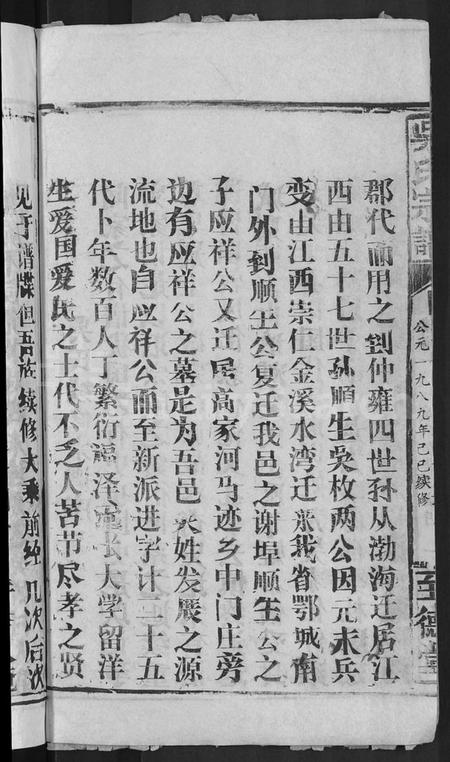 吳氏宗譜
公元一九八九年己巳续修
至德堂
郡代而用之到仲雍四世孙从渤海迁居江
西由五十七世孙顺生吳枚两公因元末兵
变由江西崇仁金溪水湾迁来我省鄂城南
门外到顺生公复迁我邑之谢埠顺生公之
子应祥公又迁居高家河马迹乡中门庄旁
边有应祥公之墓是为吾邑吴姓发展之源
流地也自应祥公而至新派进字计二十五
代卜年数百人丁繁衍福泽 长大学留洋
生爱国爱民之士代不乏人苦节尽孝之贤
见于谱牒但吾族续修大乘前经几次后次